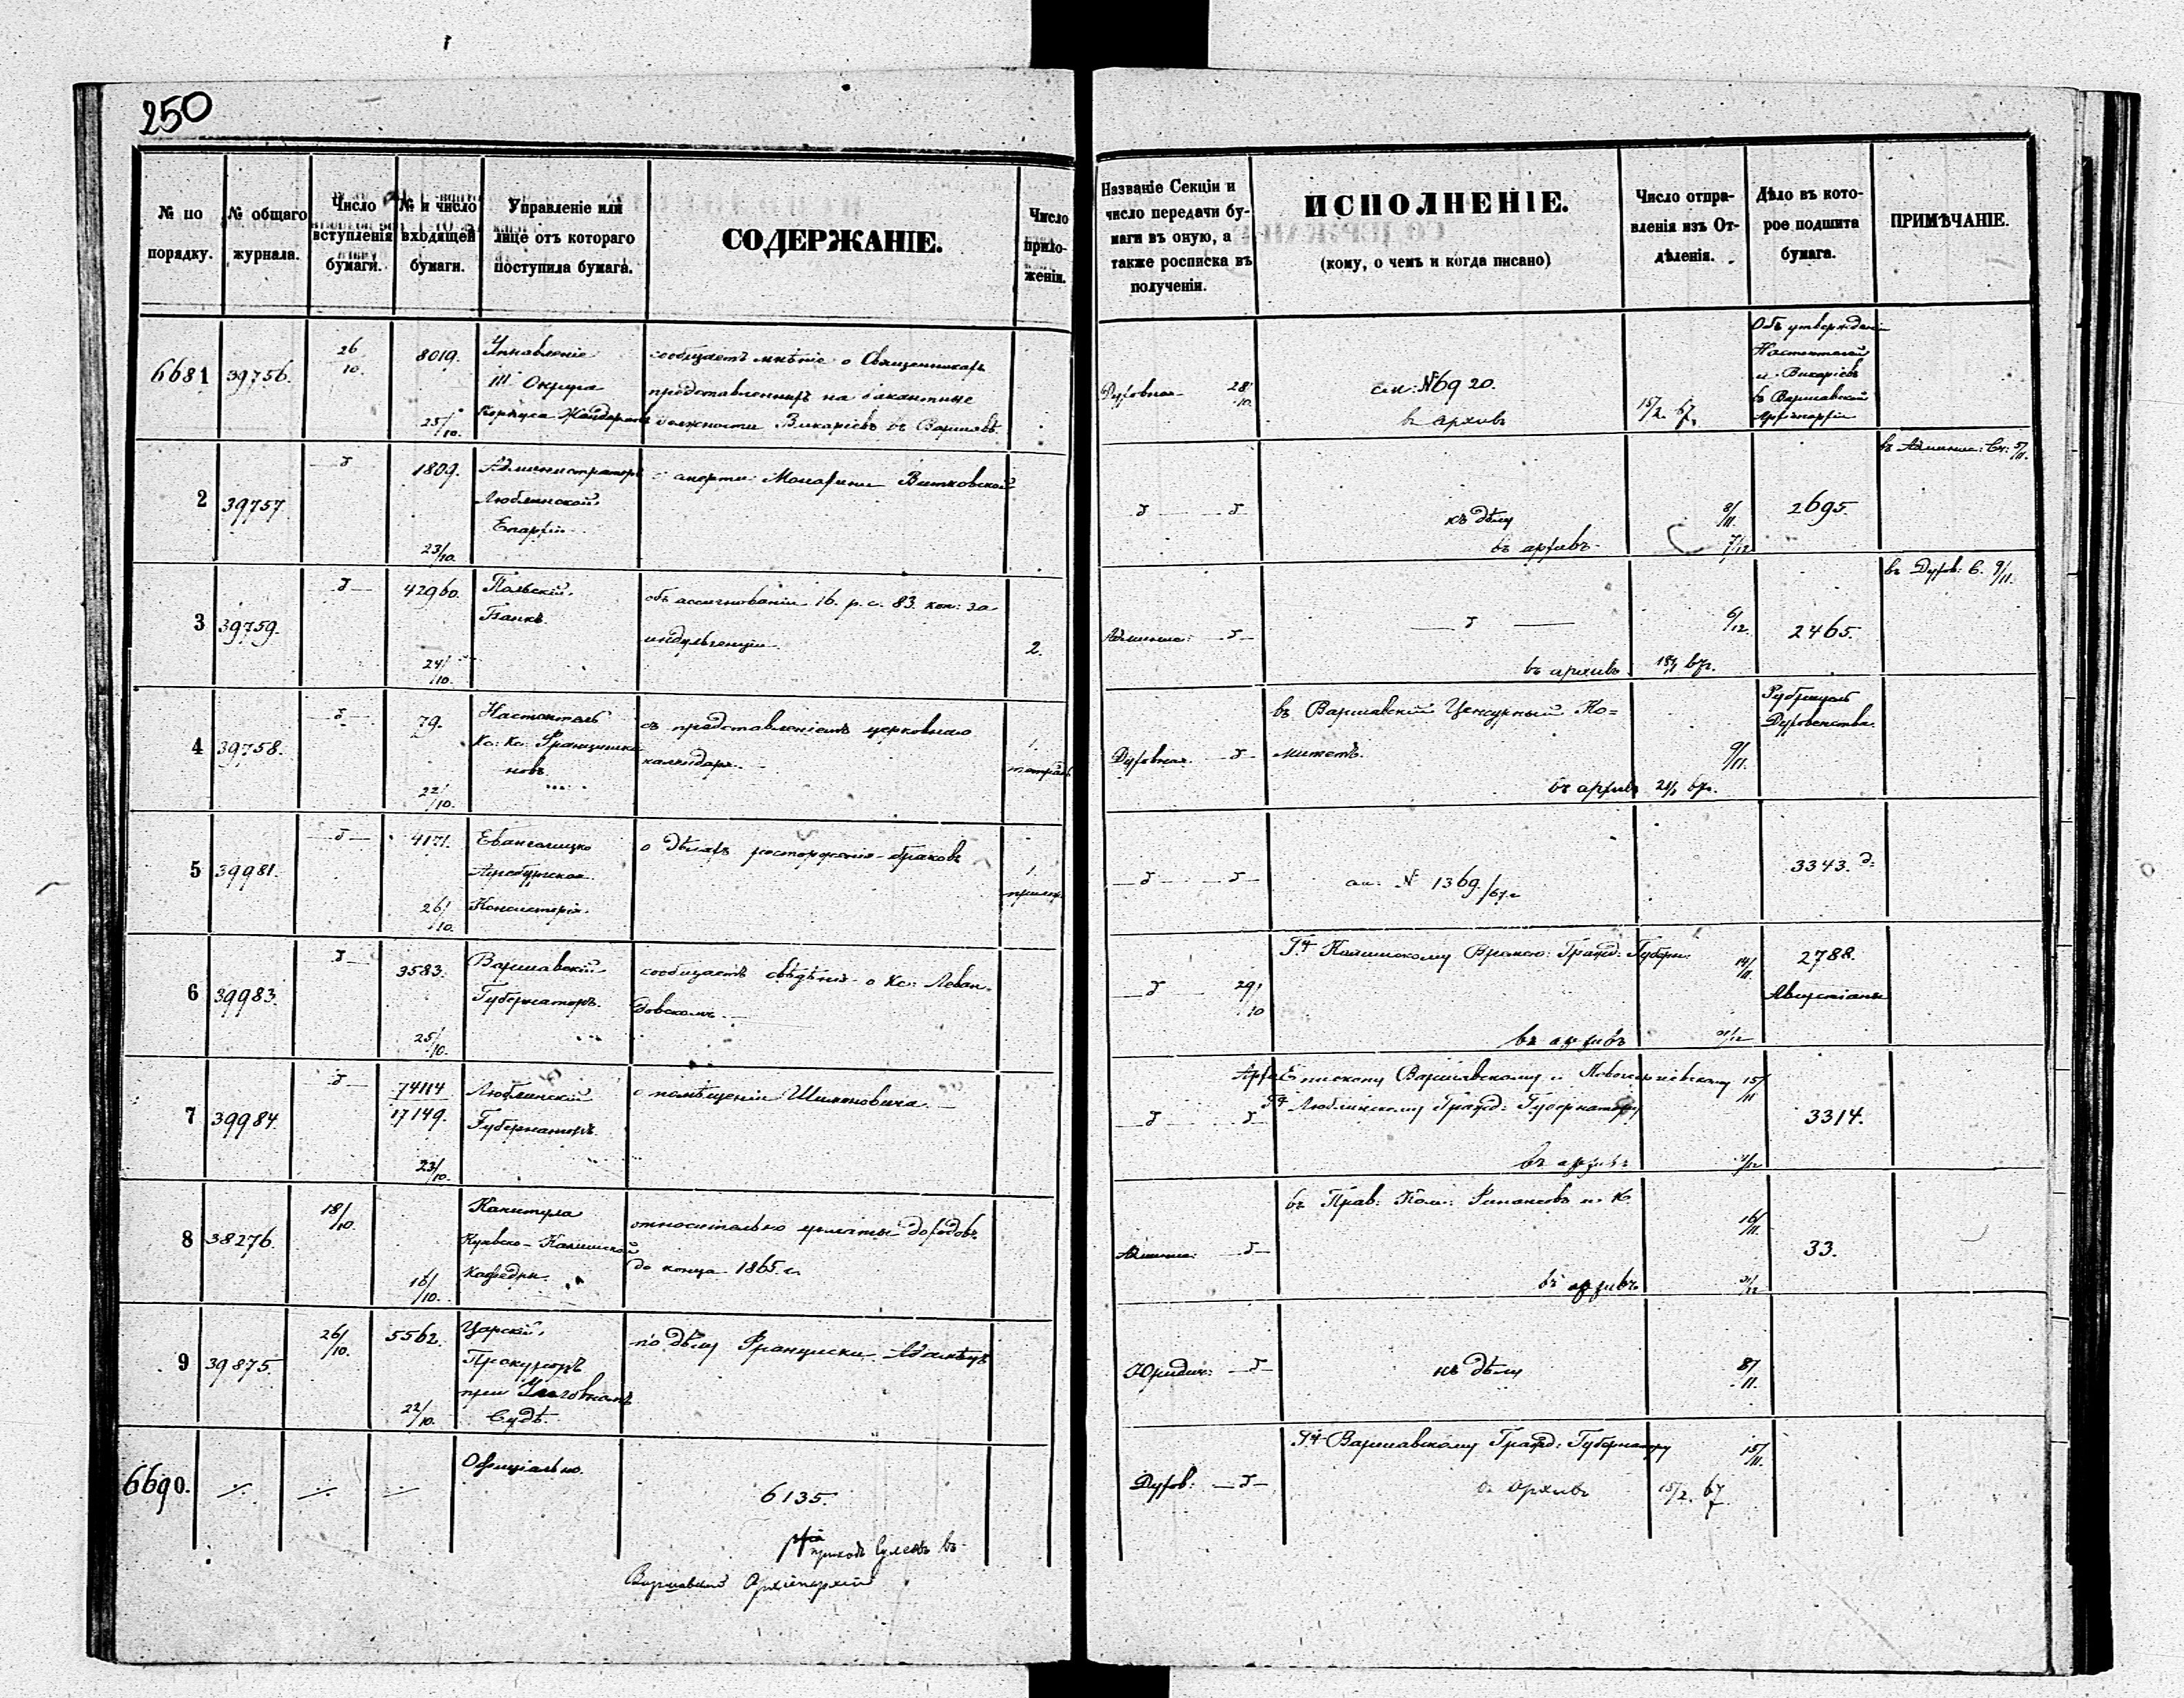 250
№ по порядку.
№ общаго журнала.
Число вступленія бумаги.
№ и число входящей бумаги.
Управленіе или лице отъ котораго поступила бумага.
СОДЕРЖАНІЕ.
Число приложеніи.
Названіе Секціи и число передачи бумаги въ оную, а также росписка въ полученіи.
ИСПОЛНЕНІЕ.
(кому, о чемъ и когда писано)
Число отправленія изъ Отдѣленія.
Дѣло въ которое подшита бумага.
ПРИМѢЧАНІЕ.
6681 39756. 26/10. 8019. 25/10.
Управленіе
III Округа
Корпуса Жандармовъ
сообщаетъ мнѣніе о Священникахъ
представленныхъ на вакантные
должности Викаріевъ въ Варшавѣ.
Духовная 28/10.
см: № 6920.
въ архивъ
15/2. 67.
Объ утвержден
Настоятелей
и Викаріевъ
въ Варшавской
Архіепархіи
2 39757 1809. 23/10.
Администраторъ
Люблинской
Епархіи
о смерти Монахини Витковской
къ дѣлу
въ архивъ
8/11.
7/12
2695.
въ Админис: Сѣ: 5/11.
3 39759. 42960. 24/10.
Польскій
Банкъ.
объ ассигнованіи 16. р. с. 83. коп: за
индульгенціи
2.
Админис:
въ архивъ
6/12.
67г.
2465.
въ Духов: С. 9/11.
4 39758. 79. 22/10.
Настоятель
Кс: Кс: Францишка
новъ
съ представленіемъ церковнаго
календаря.
1.
тетрадь
Духовная.
въ Варшавскій Цензурный Ко=
митетъ.
въ архивъ
9/11.
67г.
Рубрицели
Духовенства.
5 39981. 4171. 26/10.
Евангелицко
Аугсбургская
Консисторія.
о дѣлахъ расторженія браковъ
1.
см: № 1369./67г
3343.
6 39983. 3583. 25/10.
Варшавскій
Губернаторъ.
сообщаетъ свѣдѣнія о Кс: Леван-
довскомъ.
29/10
Калишскому Гражд: Губерн:
въ архивъ
14/11
2788.
7 39984. 74114 17149. 23/10.
Люблинскій
Губернаторъ.
о помѣщеніи Шимоновича.
АрхіЕпископу Варшавскому и Новогеоргіевскому
Люблинскому Гражд: Губернатору
въ архивъ
15/11
3314.
8 38276. 18/10. 16/10.
Капитула
Куявско-Калишской
Кафедры.
относительно уплаты доходовъ
до конца 1865.г.
Админис:
въ Прав: Ком: Финансовъ
въ архивъ
16/11.
33.
9 39875 26/10. 5562. 22/10.
Царскій
Прокуроръ
при Уголовномъ
Судѣ.
по дѣлу Францишки
Юридич:
къ дѣлу
8/11.
6690.
Офиціально.
6135.
приходъ въ
Варшавской Архіепархіи
Духов:
Варшавскому Гражд: Губернатору
въ Архивъ
15/11.
15/2. 67